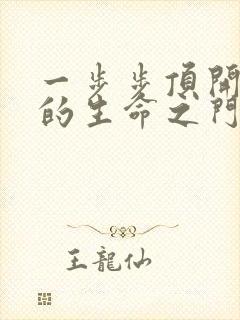 一步步頂開
的生命之門
王龍仙